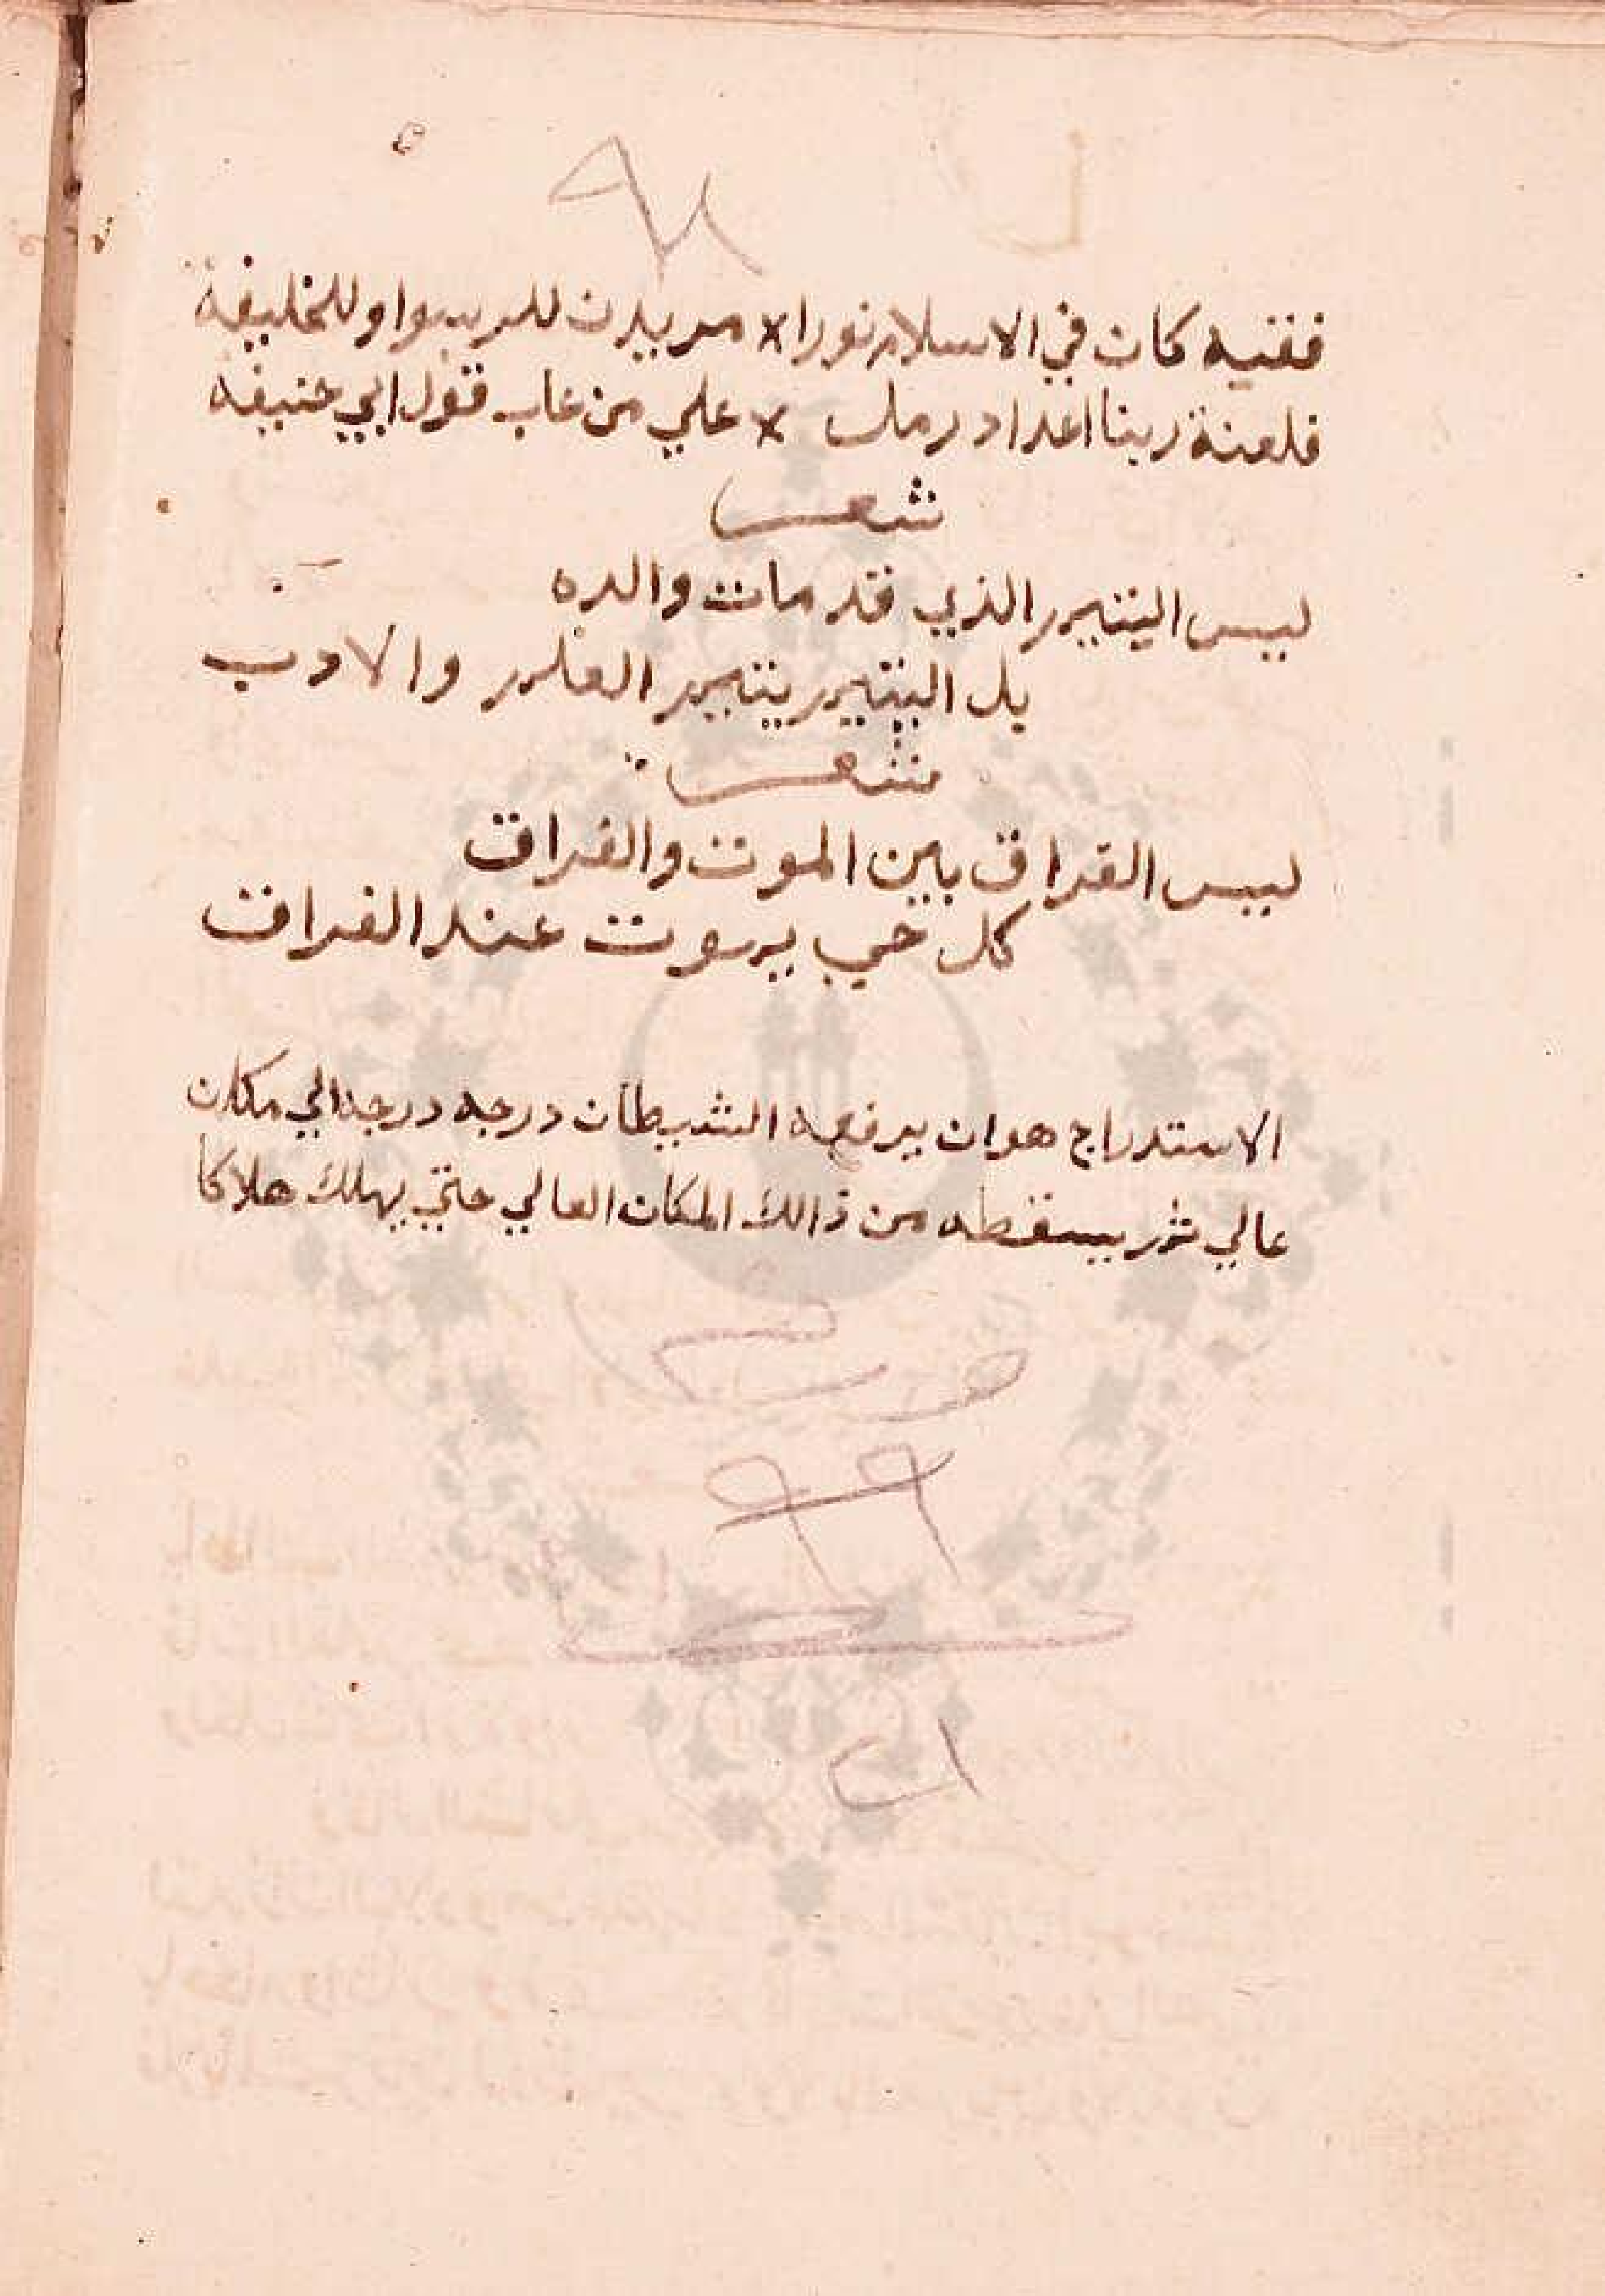 فقيه كان في الاسلام نورا × للرسول وللخليفة
فلعنة ربنا اعداد رمل × علي من عاب قول ابي حنيفه
شعر
ليس اليتيم الذي قد مات والده
بل اليتيم يتيم العلم والادب
شعر
ليس الفراق بين الموت والفراق
كل حي يموت عند الفراق
الاستدراج هو ان يرفعه الشيطان درجه درجه الي مكان
عالي ثم يسقطه من ذالك المكان العالي حتي يهلك هلاكا